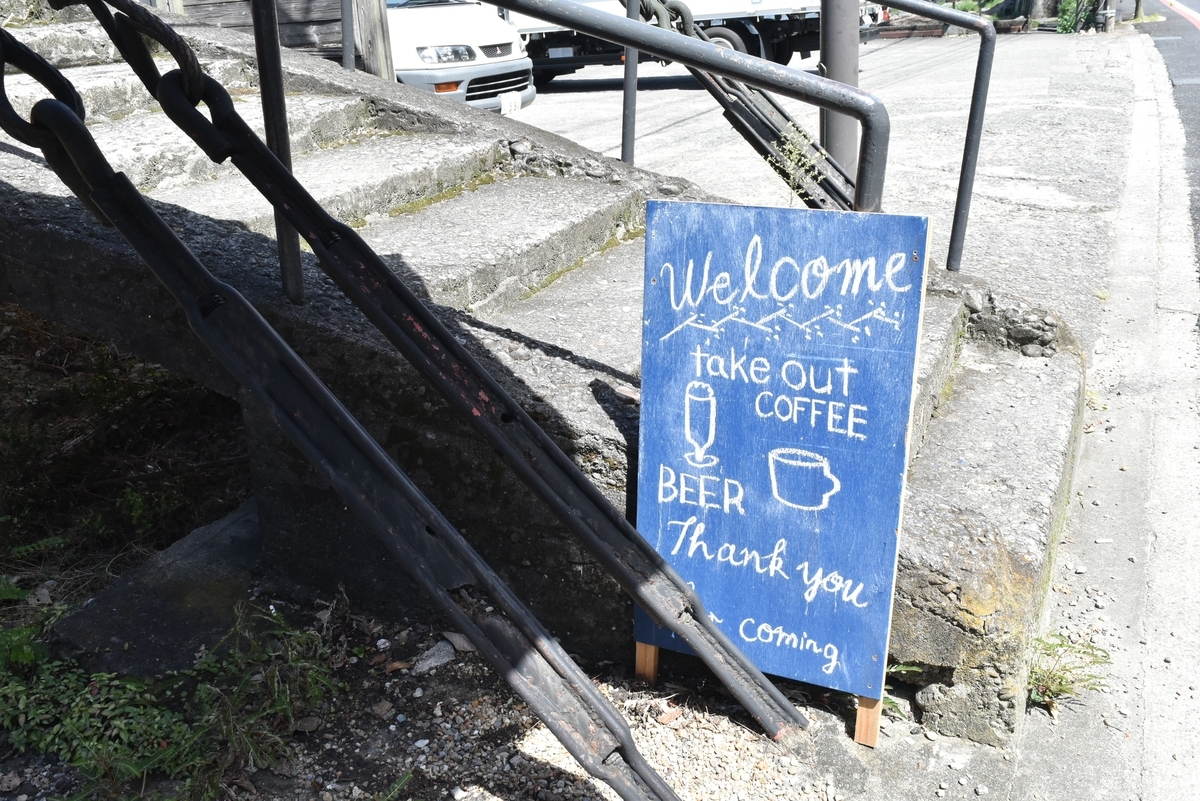 Welcome
take out
COFFEE
BEER
Thank you
coming